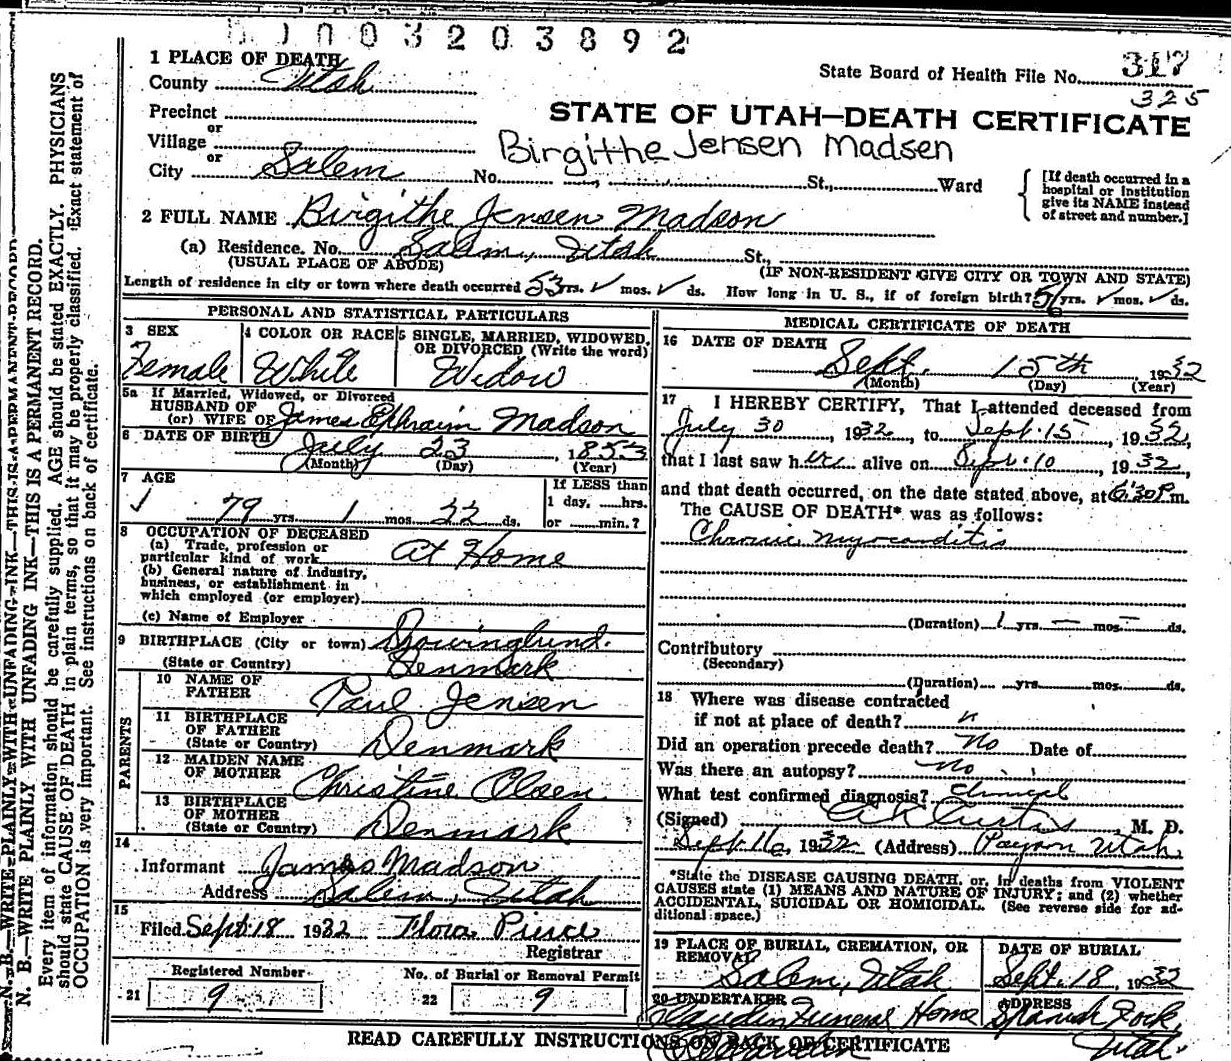 0 0 3 2 0 3 8 9 2
1 PLACE OF DEATH
County Utah
State Board of Health File No. 317
325
Precinct
or
Village
or
City Salem No. St., Ward
STATE OF UTAH—DEATH CERTIFICATE
Birgithe Jensen Madsen
[If death occurred in a
hospital or institution
give its NAME instead
of street and number.]
2 FULL NAME Birgithe Jensen Madson
(a) Residence. No. Salem, Utah St.,
(USUAL PLACE OF ABODE) (IF NON-RESIDENT GIVE CITY OR TOWN AND STATE)
Length of residence in city or town where death occurred 53 yrs. ✓ mos. ✓ ds. How long in U. S., if of foreign birth? 56 yrs. ✓ mos. ✓ ds.
PERSONAL AND STATISTICAL PARTICULARS
3 SEX
Female
4 COLOR OR RACE
White
5 SINGLE, MARRIED, WIDOWED,
OR DIVORCED (Write the word)
Widow
5a If Married, Widowed, or Divorced
HUSBAND OF
(or) WIFE OF James Ephraim Madson
6 DATE OF BIRTH July 23, 1853
(Month) (Day) (Year)
7 AGE
79 yrs. 1 mos. 22 ds.
If LESS than
1 day, hrs.
or min.?
8 OCCUPATION OF DECEASED
(a) Trade, profession or
particular kind of work At Home
(b) General nature of industry,
business, or establishment in
which employed (or employer)
(c) Name of Employer
9 BIRTHPLACE (City or town)
(State or Country) Denmark
PARENTS
10 NAME OF
FATHER Paul Jensen
11 BIRTHPLACE
OF FATHER
(State or Country) Denmark
12 MAIDEN NAME
OF MOTHER Christine Olsen
13 BIRTHPLACE
OF MOTHER
(State or Country) Denmark
14
Informant James Madson
Address Salem, Utah
15
Filed Sept 18 1932 Flora Pierce
Registrar
Registered Number
21 9
No. of Burial or Removal Permit
22 9
MEDICAL CERTIFICATE OF DEATH
16 DATE OF DEATH
Sept. 15th 1932
(Month) (Day) (Year)
17 I HEREBY CERTIFY, That I attended deceased from
July 30, 1932, to Sept. 15, 1932,
that I last saw her alive on Sept. 10, 1932,
and that death occurred, on the date stated above, at 6:30 P.m.
The CAUSE OF DEATH* was as follows:
Chronic myocarditis
(Duration) 1 yrs. — mos. — ds.
Contributory
(Secondary)
(Duration) yrs. mos. ds.
18 Where was disease contracted
if not at place of death?
Did an operation precede death? No Date of
Was there an autopsy? No
What test confirmed diagnosis? Clinical
(Signed) A Curtis M. D.
Sept. 16, 1932 (Address) Payson Utah.
*State the DISEASE CAUSING DEATH, or, in deaths from VIOLENT
CAUSES state (1) MEANS AND NATURE OF INJURY; and (2) whether
ACCIDENTAL, SUICIDAL OR HOMICIDAL. (See reverse side for ad-
ditional space.)
19 PLACE OF BURIAL, CREMATION, OR
REMOVAL
Salem, Utah
DATE OF BURIAL
Sept. 18, 1932
20 UNDERTAKER
Claudin Funeral Home
ADDRESS
Spanish Fork,
Utah.
READ CAREFULLY INSTRUCTIONS ON BACK OF CERTIFICATE
N. B.—WRITE PLAINLY WITH UNFADING INK—THIS IS A PERMANENT RECORD.
N. B.—WRITE PLAINLY WITH UNFADING INK—THIS IS A PERMANENT RECORD.
Every item of information should be carefully supplied. AGE should be stated EXACTLY. PHYSICIANS
should state CAUSE OF DEATH in plain terms, so that it may be properly classified. Exact statement of
OCCUPATION is very important. See instructions on back of certificate.